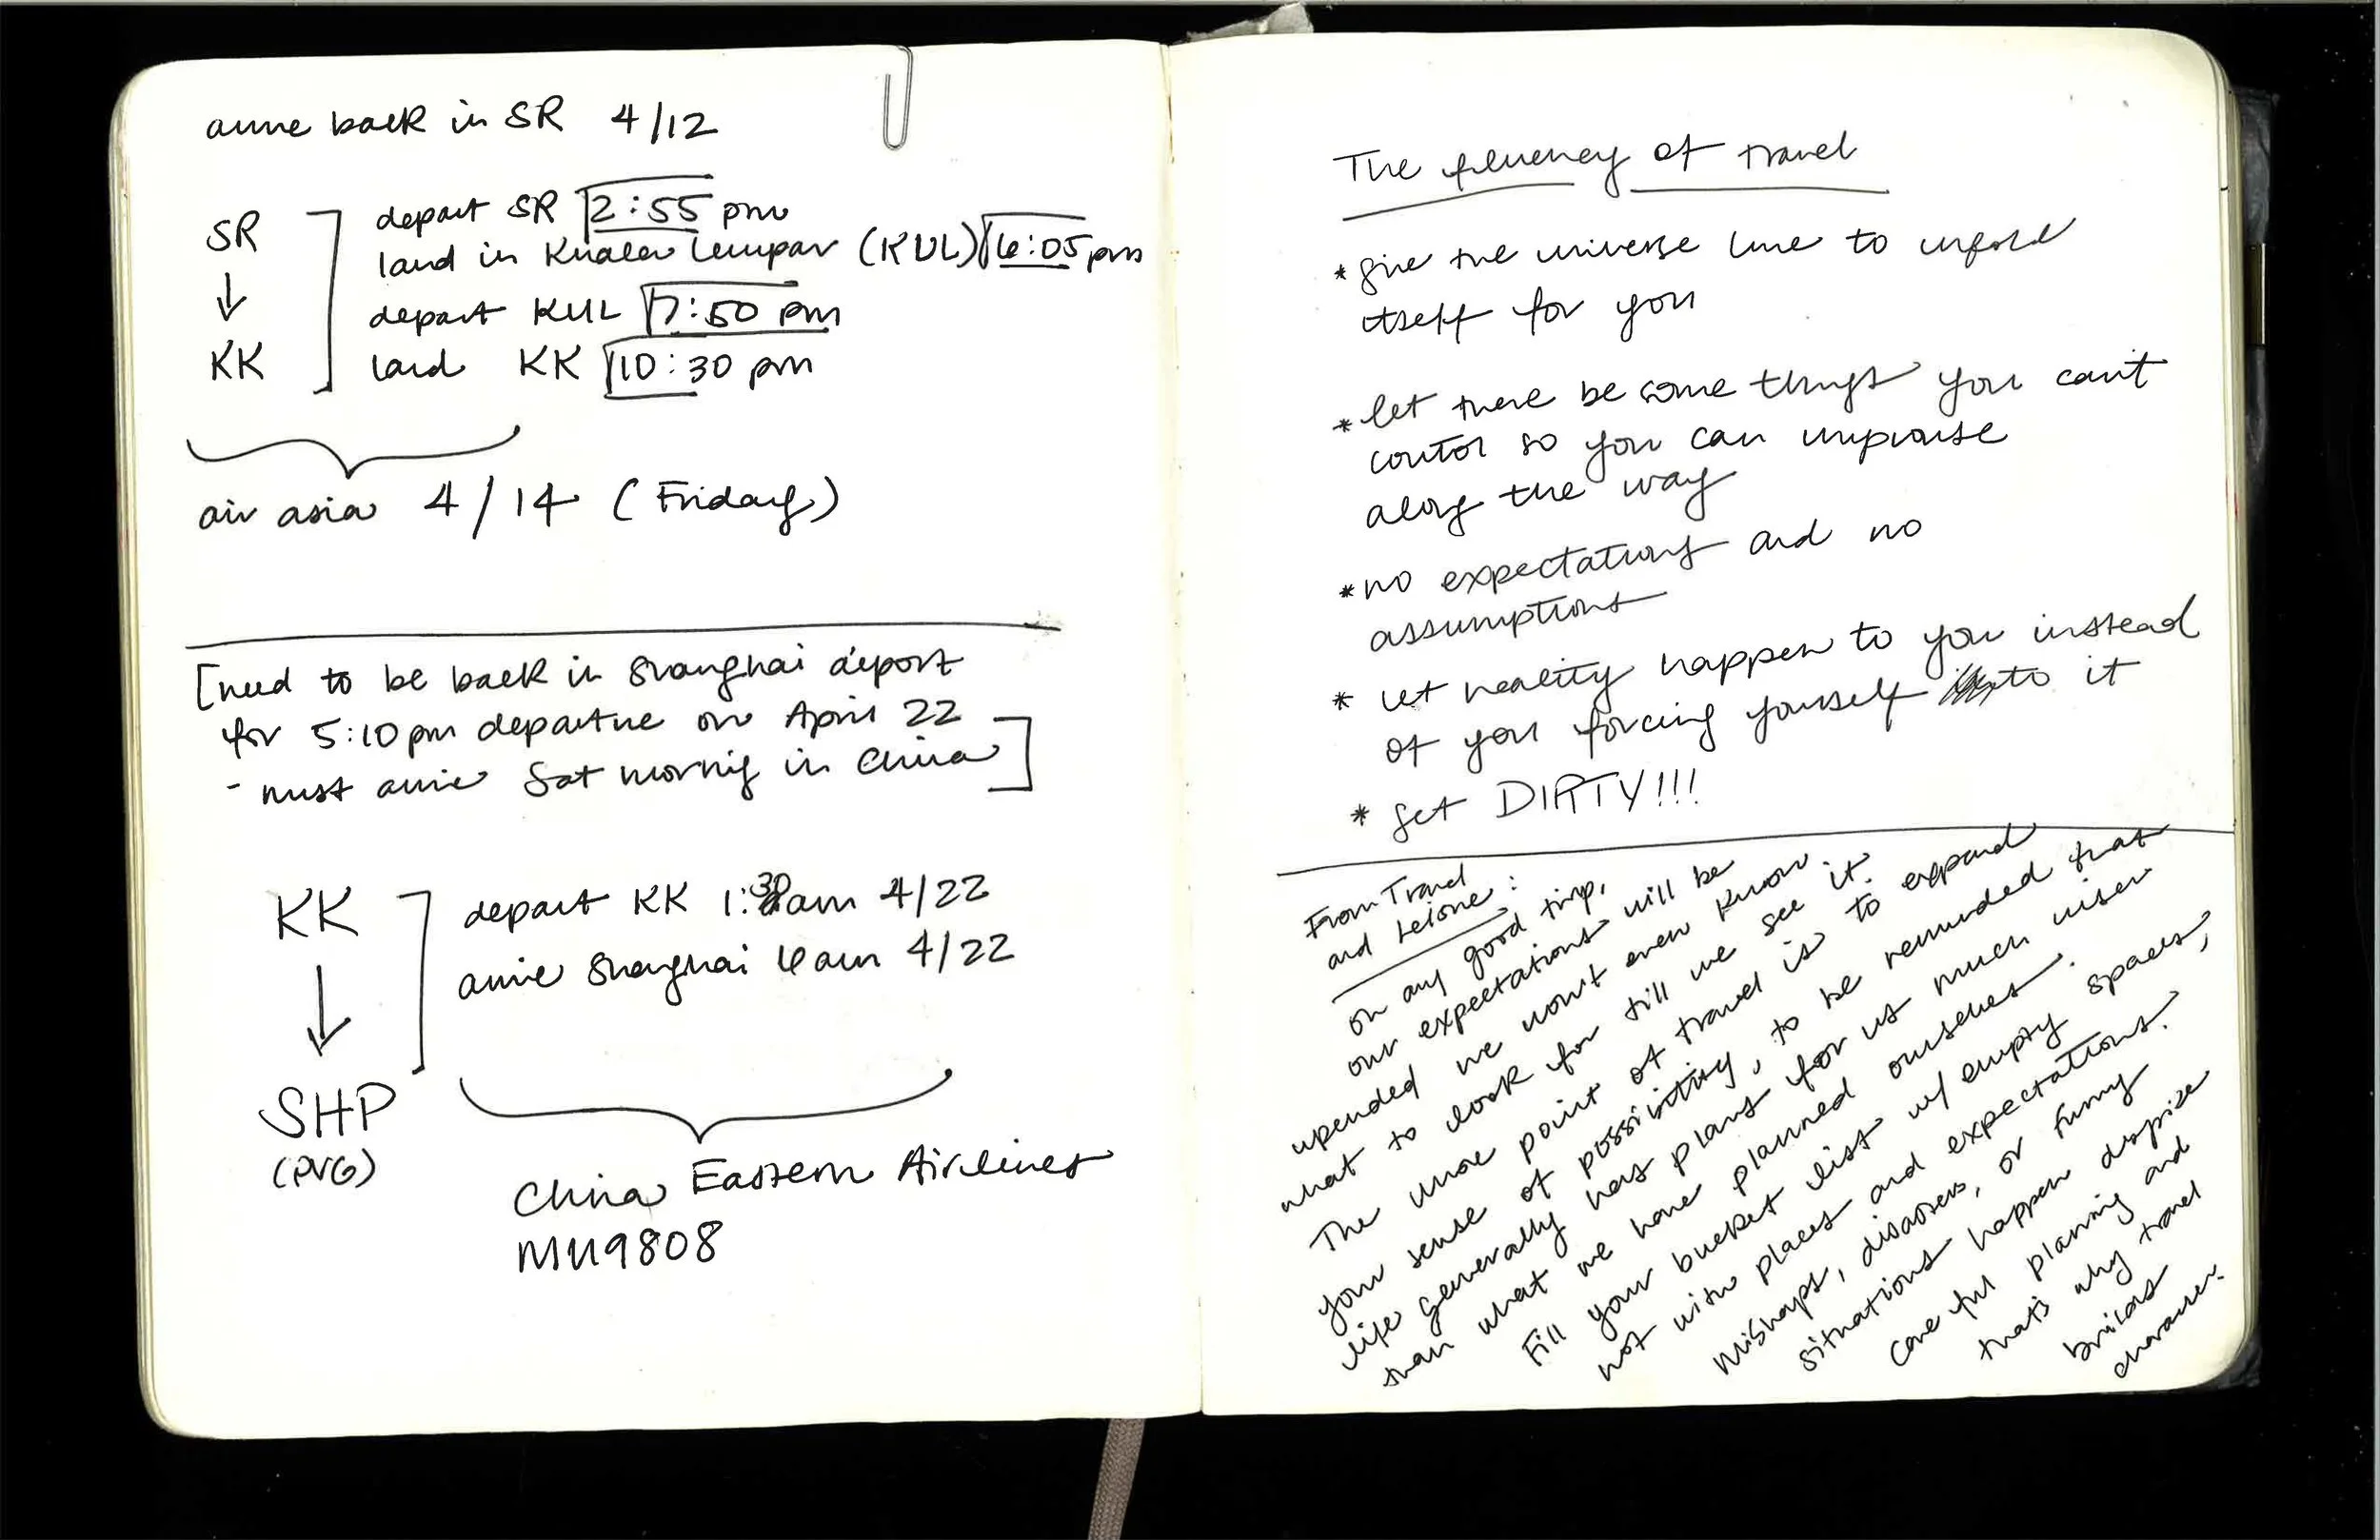 arrive back in SR 4/12
SR
↓
KK
depart SR 2:55 pm
land in Kuala Lumpar (KUL) 6:05 pm
depart KUL 7:50 pm
land KK 10:30 pm
air asia 4/14 (Friday)
[need to be back in Shanghai airport
for 5:10pm departure on April 22
- must arrive Sat morning in China]
KK
↓
SHP
(PVG)
depart KK 1:30am 4/22
arrive Shanghai 6am 4/22
China Eastern Airlines
MU9808
The fluency of travel
*give the universe time to unfold
itself for you
*let there be some things you can't
control so you can improvise
along the way
*no expectations and no
assumptions
* let reality happen to you instead
of you forcing yourself to it
* get DIRTY!!!
From Travel
and Leisure:
on any good trip,
our expectations will be
upended we won't even know
what to look for till we see it.
The whole point of travel is to expand
your sense of possibility, to be reminded that
life generally has plans for us much wiser
than what we have planned ourselves.
Fill your bucket list w/ empty spaces,
not with places and expectations.
Mishaps, disasters, or funny
situations happen despite
careful planning and
that's why travel
builds
character.